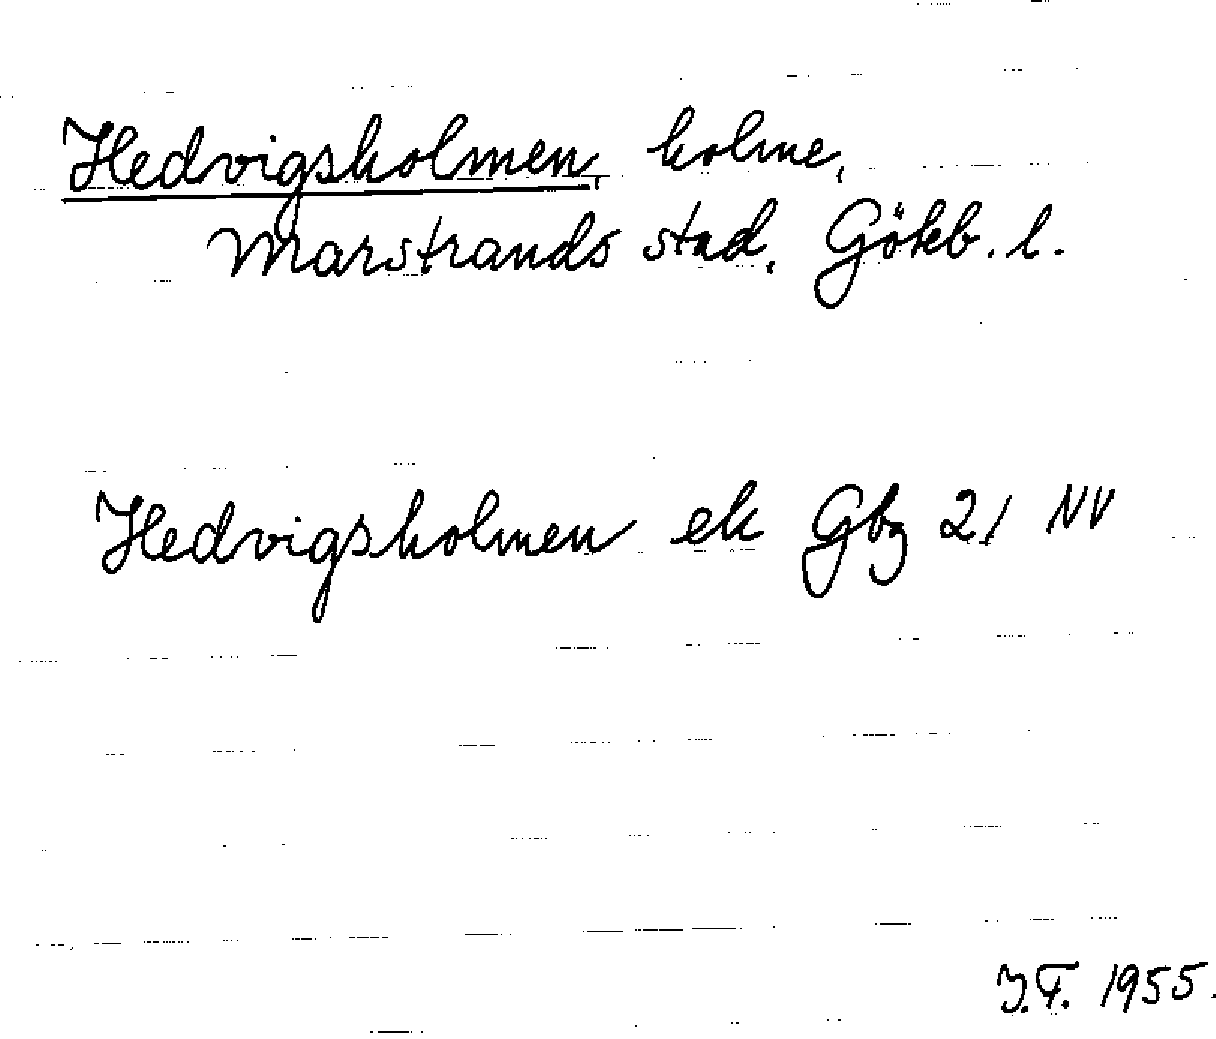 Hedvigsholmen, holme,
Marstrands stad, Göteb. l.
Hedvigsholmen ek Gbg 21 NV
J.F. 1955.